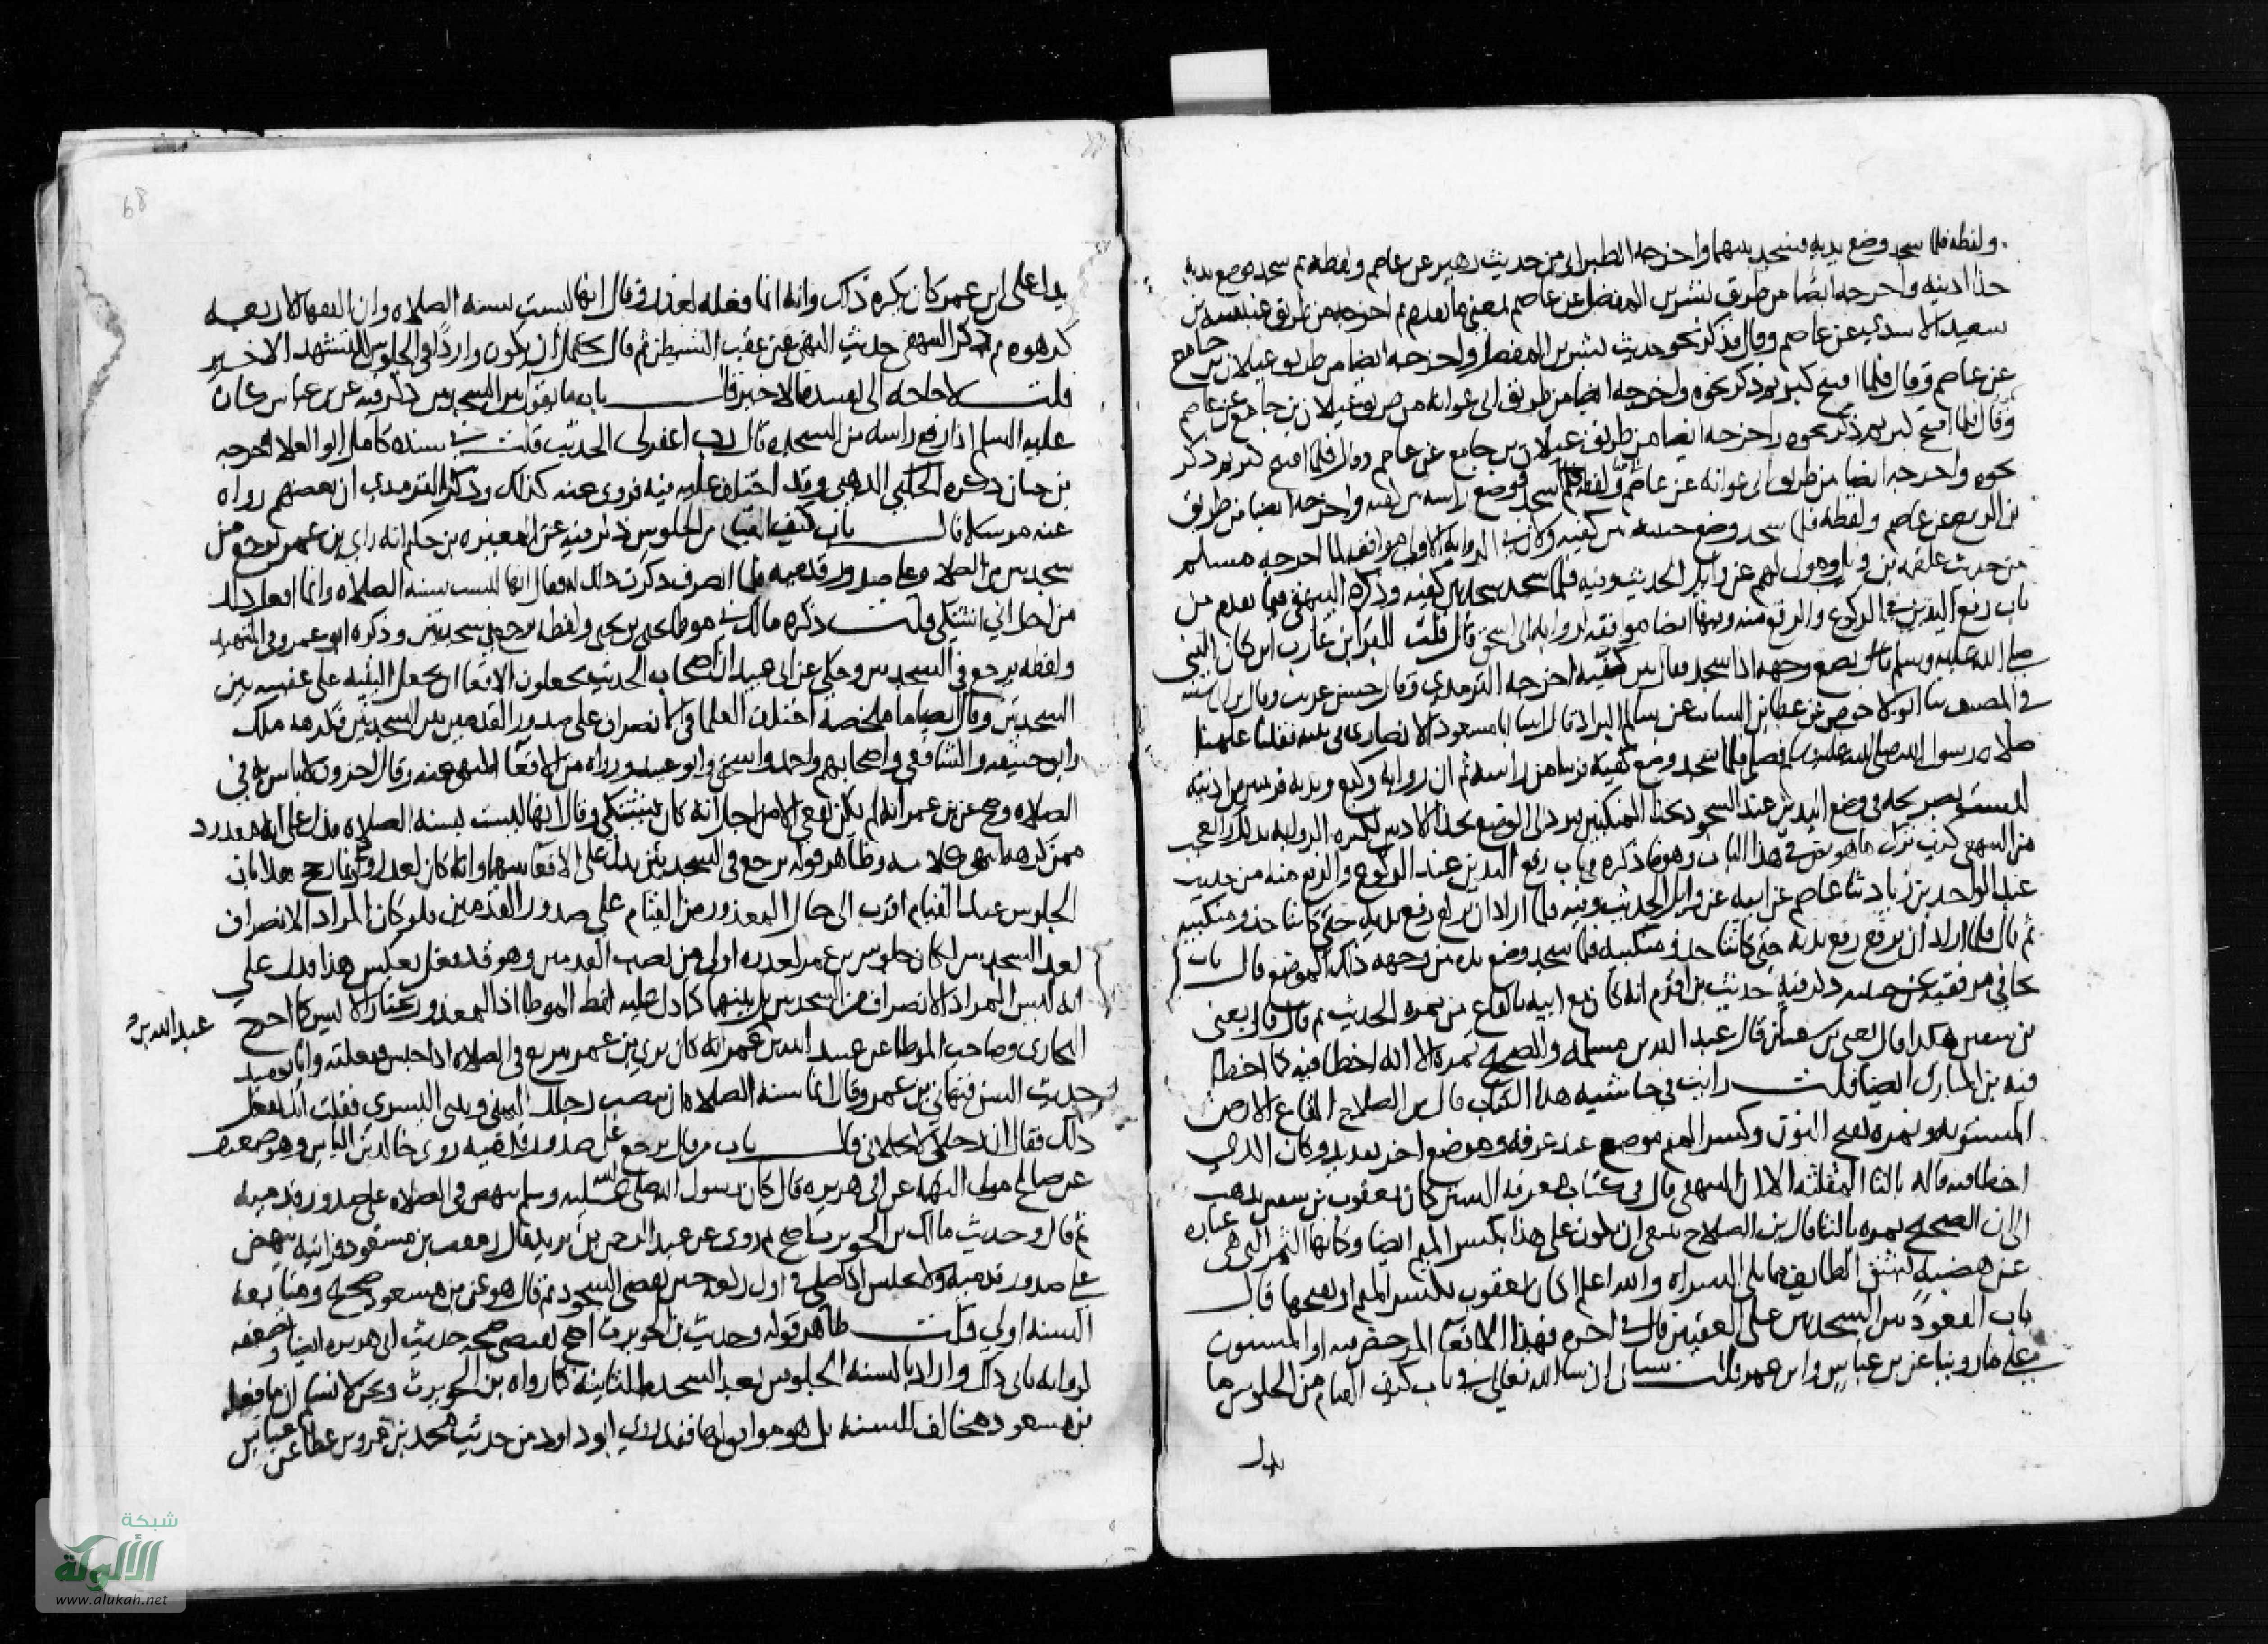 ولفظه فلما سجد وضع يديه فسجد بينهما واخرجه الطبراني من حديث زهير عن عاصم ولفظه ثم سجد فوضع يديه
حذا اذنيه واخرجه ايضا من طريق بشر بن المفضل عن عاصم بمعنى ما تقدم ثم اخرجه من طريق عنبسه بن
سعيد الاسدي عن عاصم وقال فذكر نحو حديث بشر بن المفضل واخرجه ايضا من طريق غيلان بن جامع
عن عاصم وقال فلما افتتح كبر ثم ذكر نحوه واخرجه ايضا من طريق ابي عوانه من طريق غيلان بن جامع عن عاصم
وقال فلما افتتح كبر ثم ذكر نحوه واخرجه ايضا من طريق غيلان بن جامع عن عاصم وقال فلما افتتح كبر ثم ذكر
نحوه واخرجه ايضا من طريق ابي عوانه عن عاصم ولفظه فلما سجد فوضع راسه بين كفيه واخرجه ايضا من طريق
بن الربيع عن عاصم ولفظه فلما سجد وضع جبينه بين كفيه وكانت الروايه الاولى موافقه لما اخرجه مسلم
من حديث علقمه بن وايل ومولى لهم عن وايل الحديث وفيه فلما سجد سجد بين كفيه وذكره البيهقي فيما تقدم من
باب رفع اليدين في الركوع والرفع منه وفيها ايضا موافقه لروايه ابي اسحق قال قلت للبرا بن عازب اين كان النبي
صلى الله عليه وسلم يضع وجهه اذا سجد فقال بين كفيه اخرجه الترمذي وقال حسن غريب وقال بن ابي شيبه
في المصنف ثنا ابو الاحوص عن عطا بن السايب عن سالم البراد قال اتينا ابا مسعود الانصاري في بيته فقلنا علمنا
صلاه رسول الله صلى الله عليه وسلم فصلى فلما سجد وضع كفيه قريبا من راسه ثم ان روايه وكيع ويديه قريبين من اذنيه
ليست بصريحه في وضع اليدين عند السجود بحذا المنكبين
من البيهقي كيف ترك ما هو في هذا الباب وهو ما ذكره في باب رفع اليدين عند الركوع والرفع منه من حديث
عبد الواحد بن زياد ثنا عاصم عن ابيه عن وايل الحديث وفيه فلما اراد ان يركع رفع يديه حتى كانتا حذو منكبيه
ثم قال فلما اراد ان يرفع رفع يديه حتى كانتا حذو منكبيه فلما سجد وضع يديه من وجهه ذلك الموضع قال باب
يجافي مرفقيه عن جنبيه ذكر فيه حديث بن اقرم انه كان مع ابيه بالقاع من نمره الحديث ثم قال قال يعني
بن سفين هكذا قال لعبي بن سفين قال عبد الله بن مسلمه والصحيح نمره الا انه اخطا فيه كما اخطا
فيه بن المبارك ايضا قلت رايت في حاشيه هذا الكتاب قال بن الصلاح القاع الارض
المستويه ونمره بفتح النون وكسر الميم موضع عند عرفه وهو موضع اخر بقديد وكان الذي
اخطا فيه قاله بالثا المثلثه الا ان البيهقي قال في كتاب معرفه السنن كان يعقوب بن سفين يذهب
الى ان الصحيح ثمره بالثا قال بن الصلاح ينبغي ان يكون على هذا بكسر الميم ايضا وكانها الثمر التي هي عباره
عن هضبه بشق الطايف مما يلي السراه والله اعلم اكان يعقوب بكسر الميم او يفتحها قال
باب القعود بين السجدتين على العقبين قال في اخره فهذا الاقعا المرخص فيه او المسنون
على ما روينا عن بن عباس وابن عمر قلت سياتي ان شا الله تعالى في باب كيف القيام من الجلوس ما
يدل
68
يدل على ابن عمر كان يكره ذلك وانه انما فعله لعذر وقال انها ليست بسنه الصلاه وان الفقها الاربعه
كرهوه ثم ذكر البيهقي حديث النهي عن عقب الشيطان ثم قال يحتمل ان يكون واردا في الجلوس للتشهد الاخير
قلت لا حاجه الى تقييدها بالاخير قال باب ما يقول بين السجدتين ذكر فيه عن بن عباس كان
عليه السلم اذا رفع راسه من السجده قال رب اغفر لي الحديث قلت في سنده كامل ابو العلا جرحه
بن حبان ذكره الحلبي الذهبي وقد اختلف عليه فيه فروي عنه كذلك وذكر الترمذي ان بعضهم رواه
عنه مرسلا قال باب كيف القيام من الجلوس ذكر فيه عن المغيره بن حكيم انه راى بن عمر يرجع من
سجدتين من الصلاه على صدور قدميه فلما انصرف ذكرت ذلك له فقال انها ليست بسنه الصلاه وانما افعل ذلك
من اجل اني اشتكي قلت ذكره مالك في موطا يحيى بن يحيى ولفظه يرجع في سجدتين وذكره ابو عمر في التمهيد
ولفظه يرجع في السجدتين وحكى عن ابي عبيد ان اصحاب الحديث يجعلون الاقعا ان يجعل اليتيه على عقبيه بين
السجدتين وقال ايضا ما ملخصه اختلف العلما في الانصراف على صدور القدمين بين السجدتين فكرهه ملك
وابو حنيفه والشافعي واصحابهم واحمد واسحق وابو عبيد وراوه من الاقعا المنهي عنه وقال اخرون لا باس به في
الصلاه وصح عن بن عمر انه لم يكن يفعل الا من اجل انه كان يشتكي وقال انها ليست بسنه الصلاه فدل على انه معدود
ممن كرهه انتهى كلامه وظاهر قوله يرجع في السجدتين يدل على الاقعا بينهما وانه كان لعذر
الجلوس عند القيام اقرب الى حال المعذور من القيام على صدور القدمين فلو كان المراد الانصراف
بعد السجدتين لكان جلوس بن عمر لعذره اولى من نصب القدمين وهو قد فعل بعكس هذا فدل على
انه ليس المراد الانصراف من السجدتين بل بينهما كما دل عليه لفظ الموطا اذ المعذور يختار الايسر كما اخرج
البخاري وصاحب الموطا عن عبد الله بن عبد الله بن عمر انه كان يرى بن عمر يتربع في الصلاه اذا جلس ففعلته وانا يوميد
حديث السن فنهاني بن عمر وقال انما سنه الصلاه ان تنصب رجلك اليمنى وتثني اليسرى فقلت انك تفعل
ذلك فقال ان رجلي لا تحملاني قال باب من قال يرجع على صدور قدميه روى خالد بن الياس وهو ضعيف
عن صالح مولى التوءمه عن ابي هريره قال كان رسول الله صلى الله عليه وسلم ينهض في الصلاه على صدور قدميه
ثم قال وحديث مالك بن الحويرث اصح ثم روى عن عبد الرحمن بن يزيد قال رمقت بن مسعود فرايته ينهض
على صدور قدميه ولا يجلس اذا صلى في اول ركعه حين يقضي السجود ثم قال هو عن بن مسعود صحيح ومتابعه
السنه اولى قلت ظاهر قوله وحديث بن الحويرث اصح يقتضي صحه حديث ابي هريره ايضا وضعفه
لروايه ينافي ذلك واراد بالسنه الجلوس بعد السجده الثانيه كما رواه بن الحويرث ونحن لا نسلم ان ما فعله
بن مسعود مخالف للسنه بل هو موافق لها فقد روى ابو داود من حديث محمد بن عمرو بن عطا عن عباس
شبكة
الألوكة
www.alukah.net